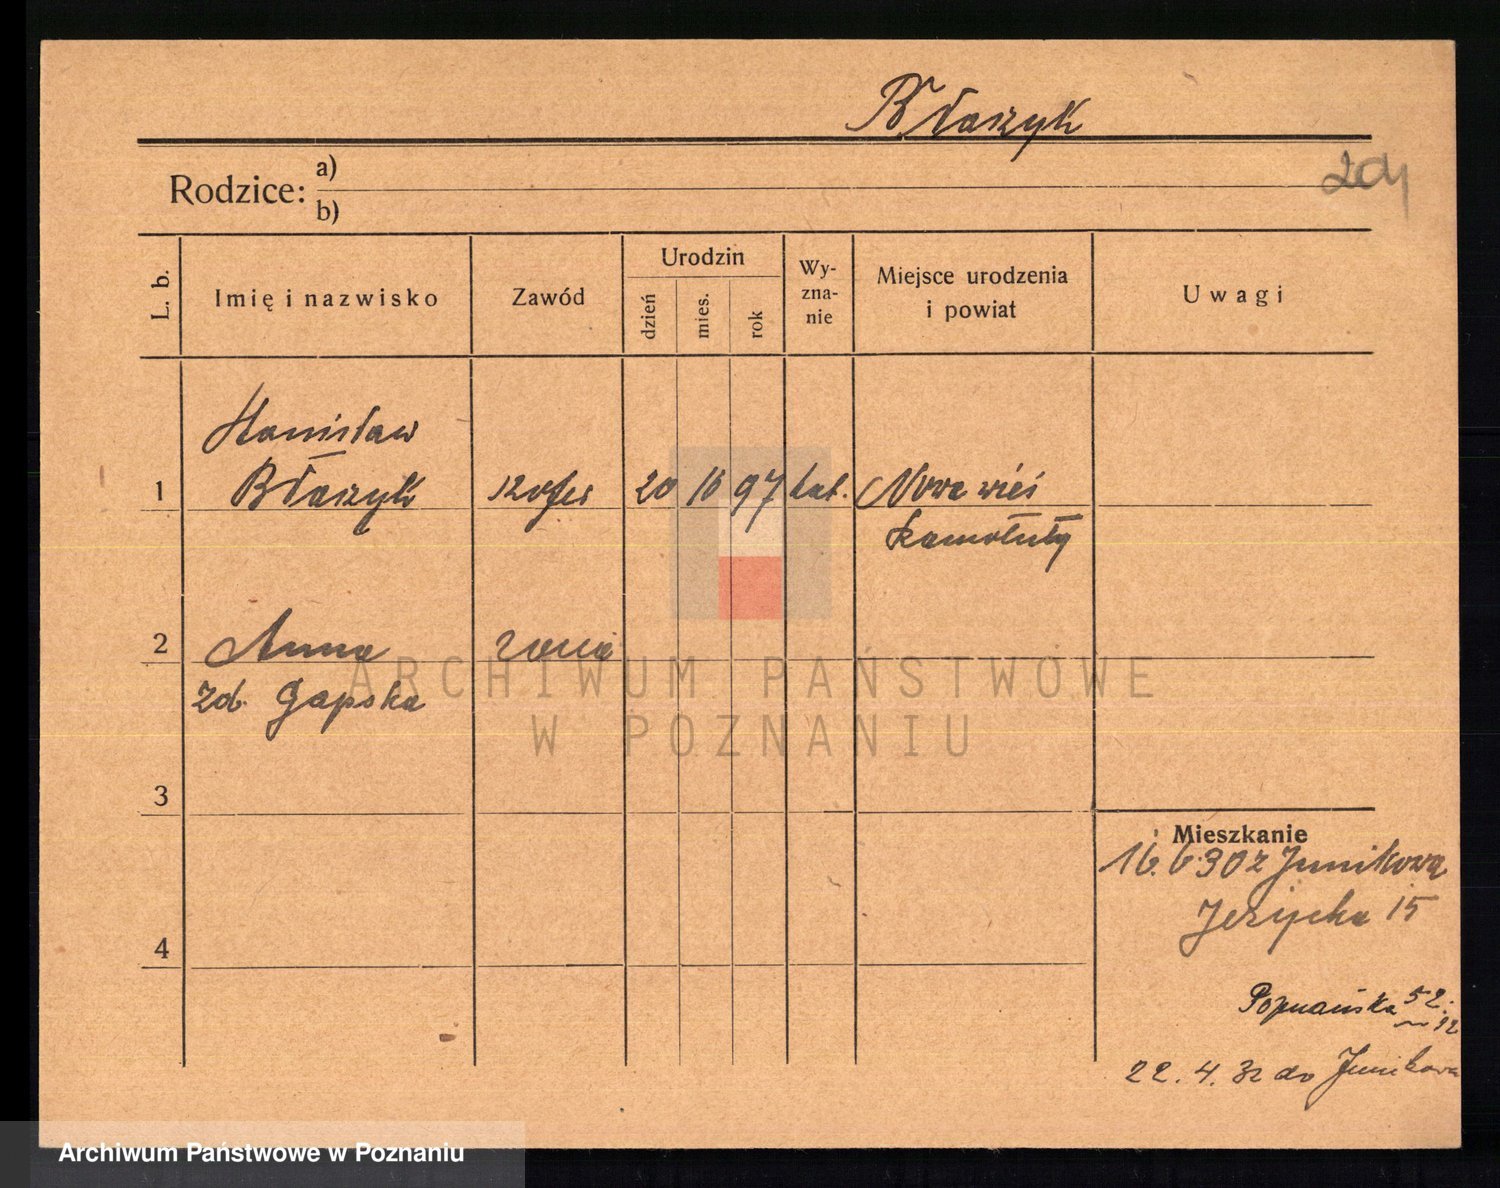 Błaszyk
Rodzice: a)
b)
L. b.
Imię i nazwisko
Zawód
Urodzin
dzień
mies.
rok
Wy-
zna-
nie
Miejsce urodzenia
i powiat
Uwagi
Stanisław
1 Błaszyk szofer 20 97 kat. Nowa wieś
2 Anna żona
zd. Gapska
3
4
Mieszkanie
16. 6. 30 z Junikowa
Jeżycka 15
Poznańska 52.
12
22. 4. 32 do Junikowa
ARCHIWUM PAŃSTWOWE
W POZNANIU
Archiwum Państwowe w Poznaniu